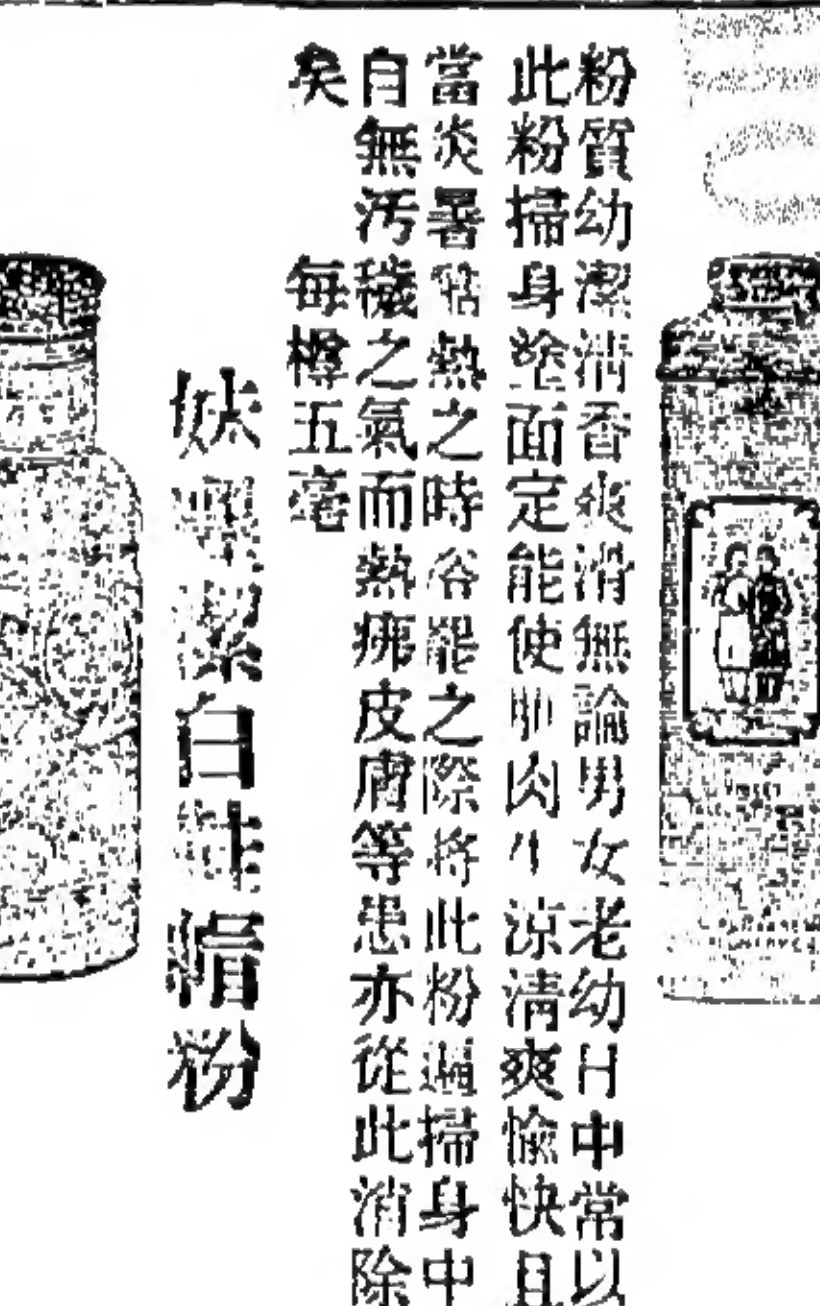 粉質幼潔清香爽滑無論男女老幼日中常以
此粉掃身塗面定能使肌肉生涼清爽愉快且
當炎暑酷熱之時浴罷之際將此粉遍掃身中
自無汚穢之氣而熱痱皮膚等患亦從此消除
矣　每樽五毫
潔白 粉